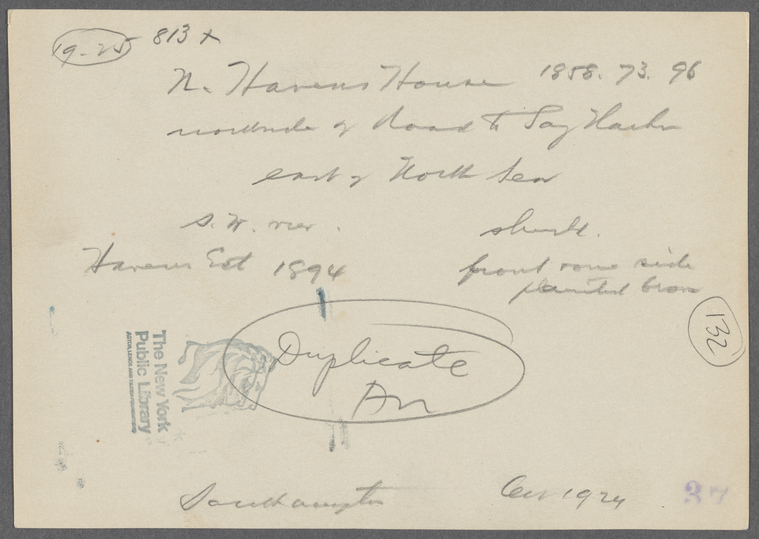 19-25 813 x
N. Havens House 1858. 73. 96
northside of Road to Sag Harbor
east of North Sea
S. W. view.
shingle.
Havens Est 1894
front one side
painted brown
132
Duplicate
The New York
Public Library
ASTOR, LENOX AND TILDEN FOUNDATIONS
Southampton 1924 37